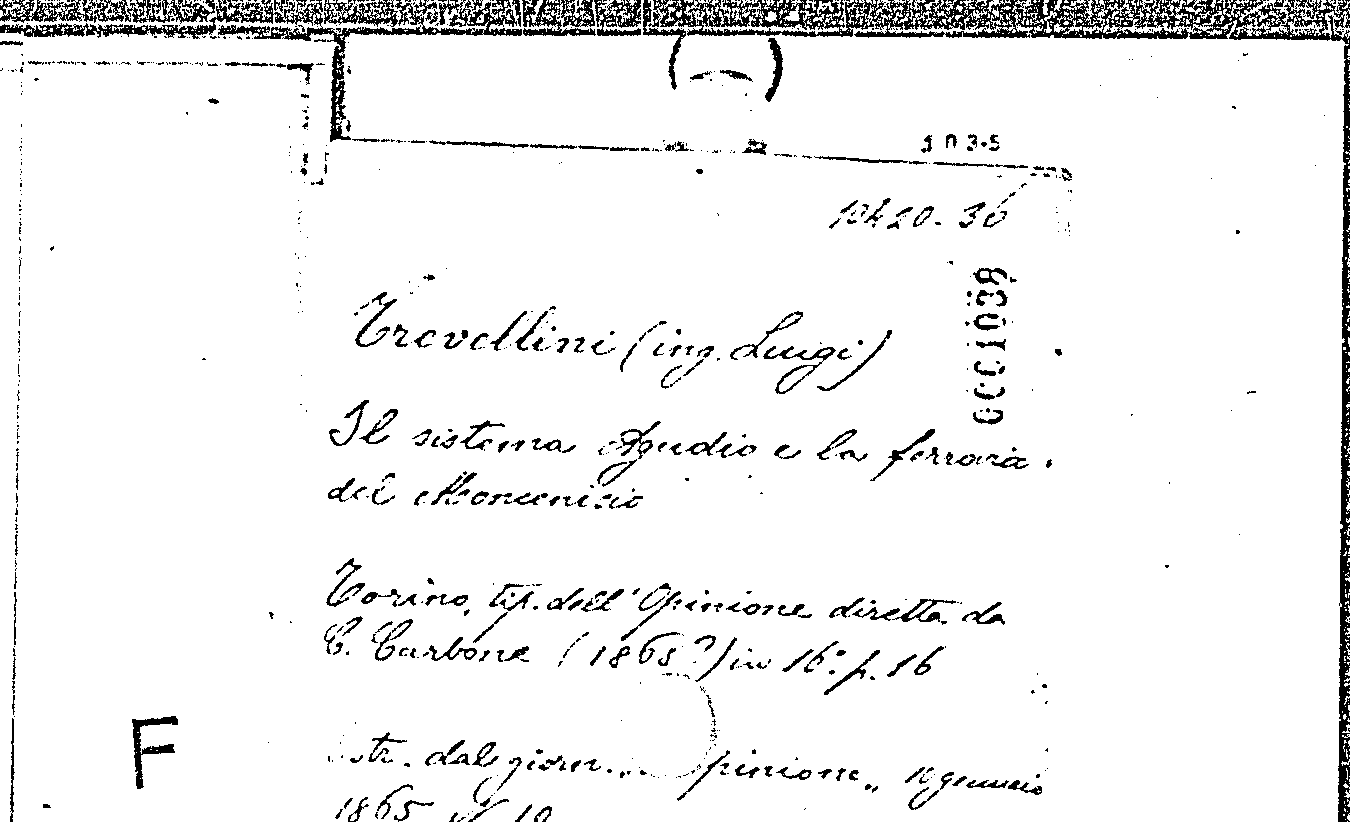 103-5
10420.36
0001038
Trevellini (ing. Luigi)
Il sistema Agudio e la ferrovia
del Moncenisio
Torino, tip. dell' Opinione diretta da
C. Carbone (1865?) in 16° p. 16
estr. dal giorn. „ Opinione„ 10 gennaio
1865 n° 10
F